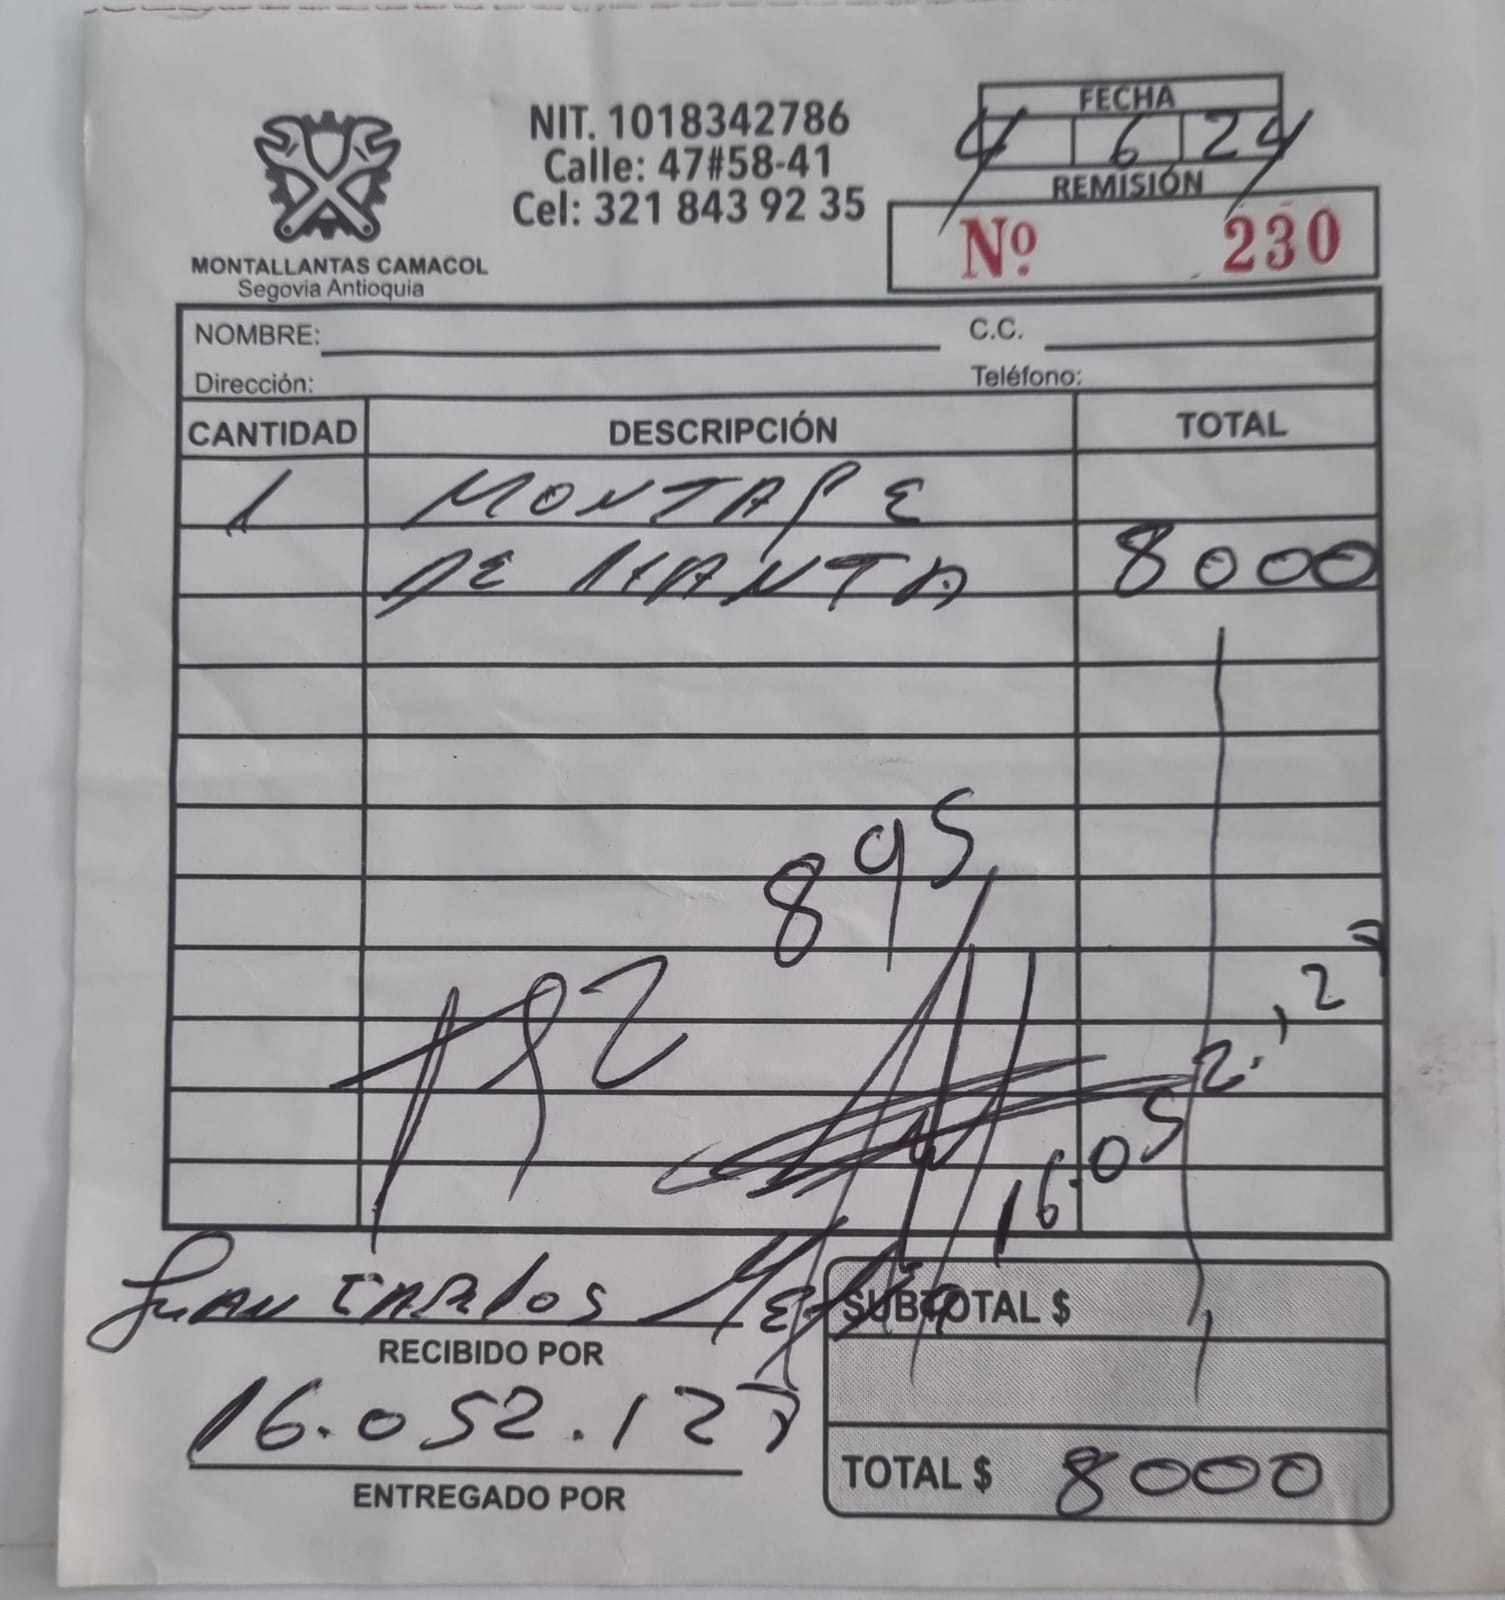 NIT. 1018342786
Calle: 47#58-41
Cel: 321 843 92 35
MONTALLANTAS CAMACOL
Segovia Antioquia
FECHA
4 6 24
REMISIÓN
Nº 230
NOMBRE: C.C.
Dirección: Teléfono:
CANTIDAD DESCRIPCIÓN TOTAL
1 MONTAJE
DE LLANTA 8000
895
16.052.127
JUAN CARLOS
RECIBIDO POR
16.052.127
ENTREGADO POR
SUBTOTAL $
TOTAL $ 8000